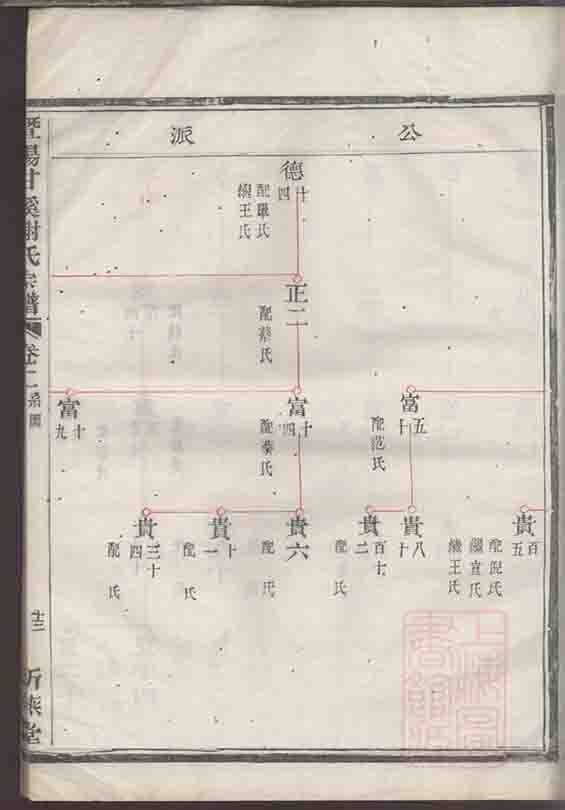 公派
德四十
配羅氏
繼王氏
正二
配蔡氏
富五十
配范氏
富四十
配蔡氏
富九十
貴五百
配倪氏
繼宣氏
繼王氏
貴八十
貴二百七十
配氏
貴六
配氏
貴十一
配氏
貴三十四
配氏
暨陽甘溪謝氏宗譜
卷二
系圖
十三
上海圖書館藏